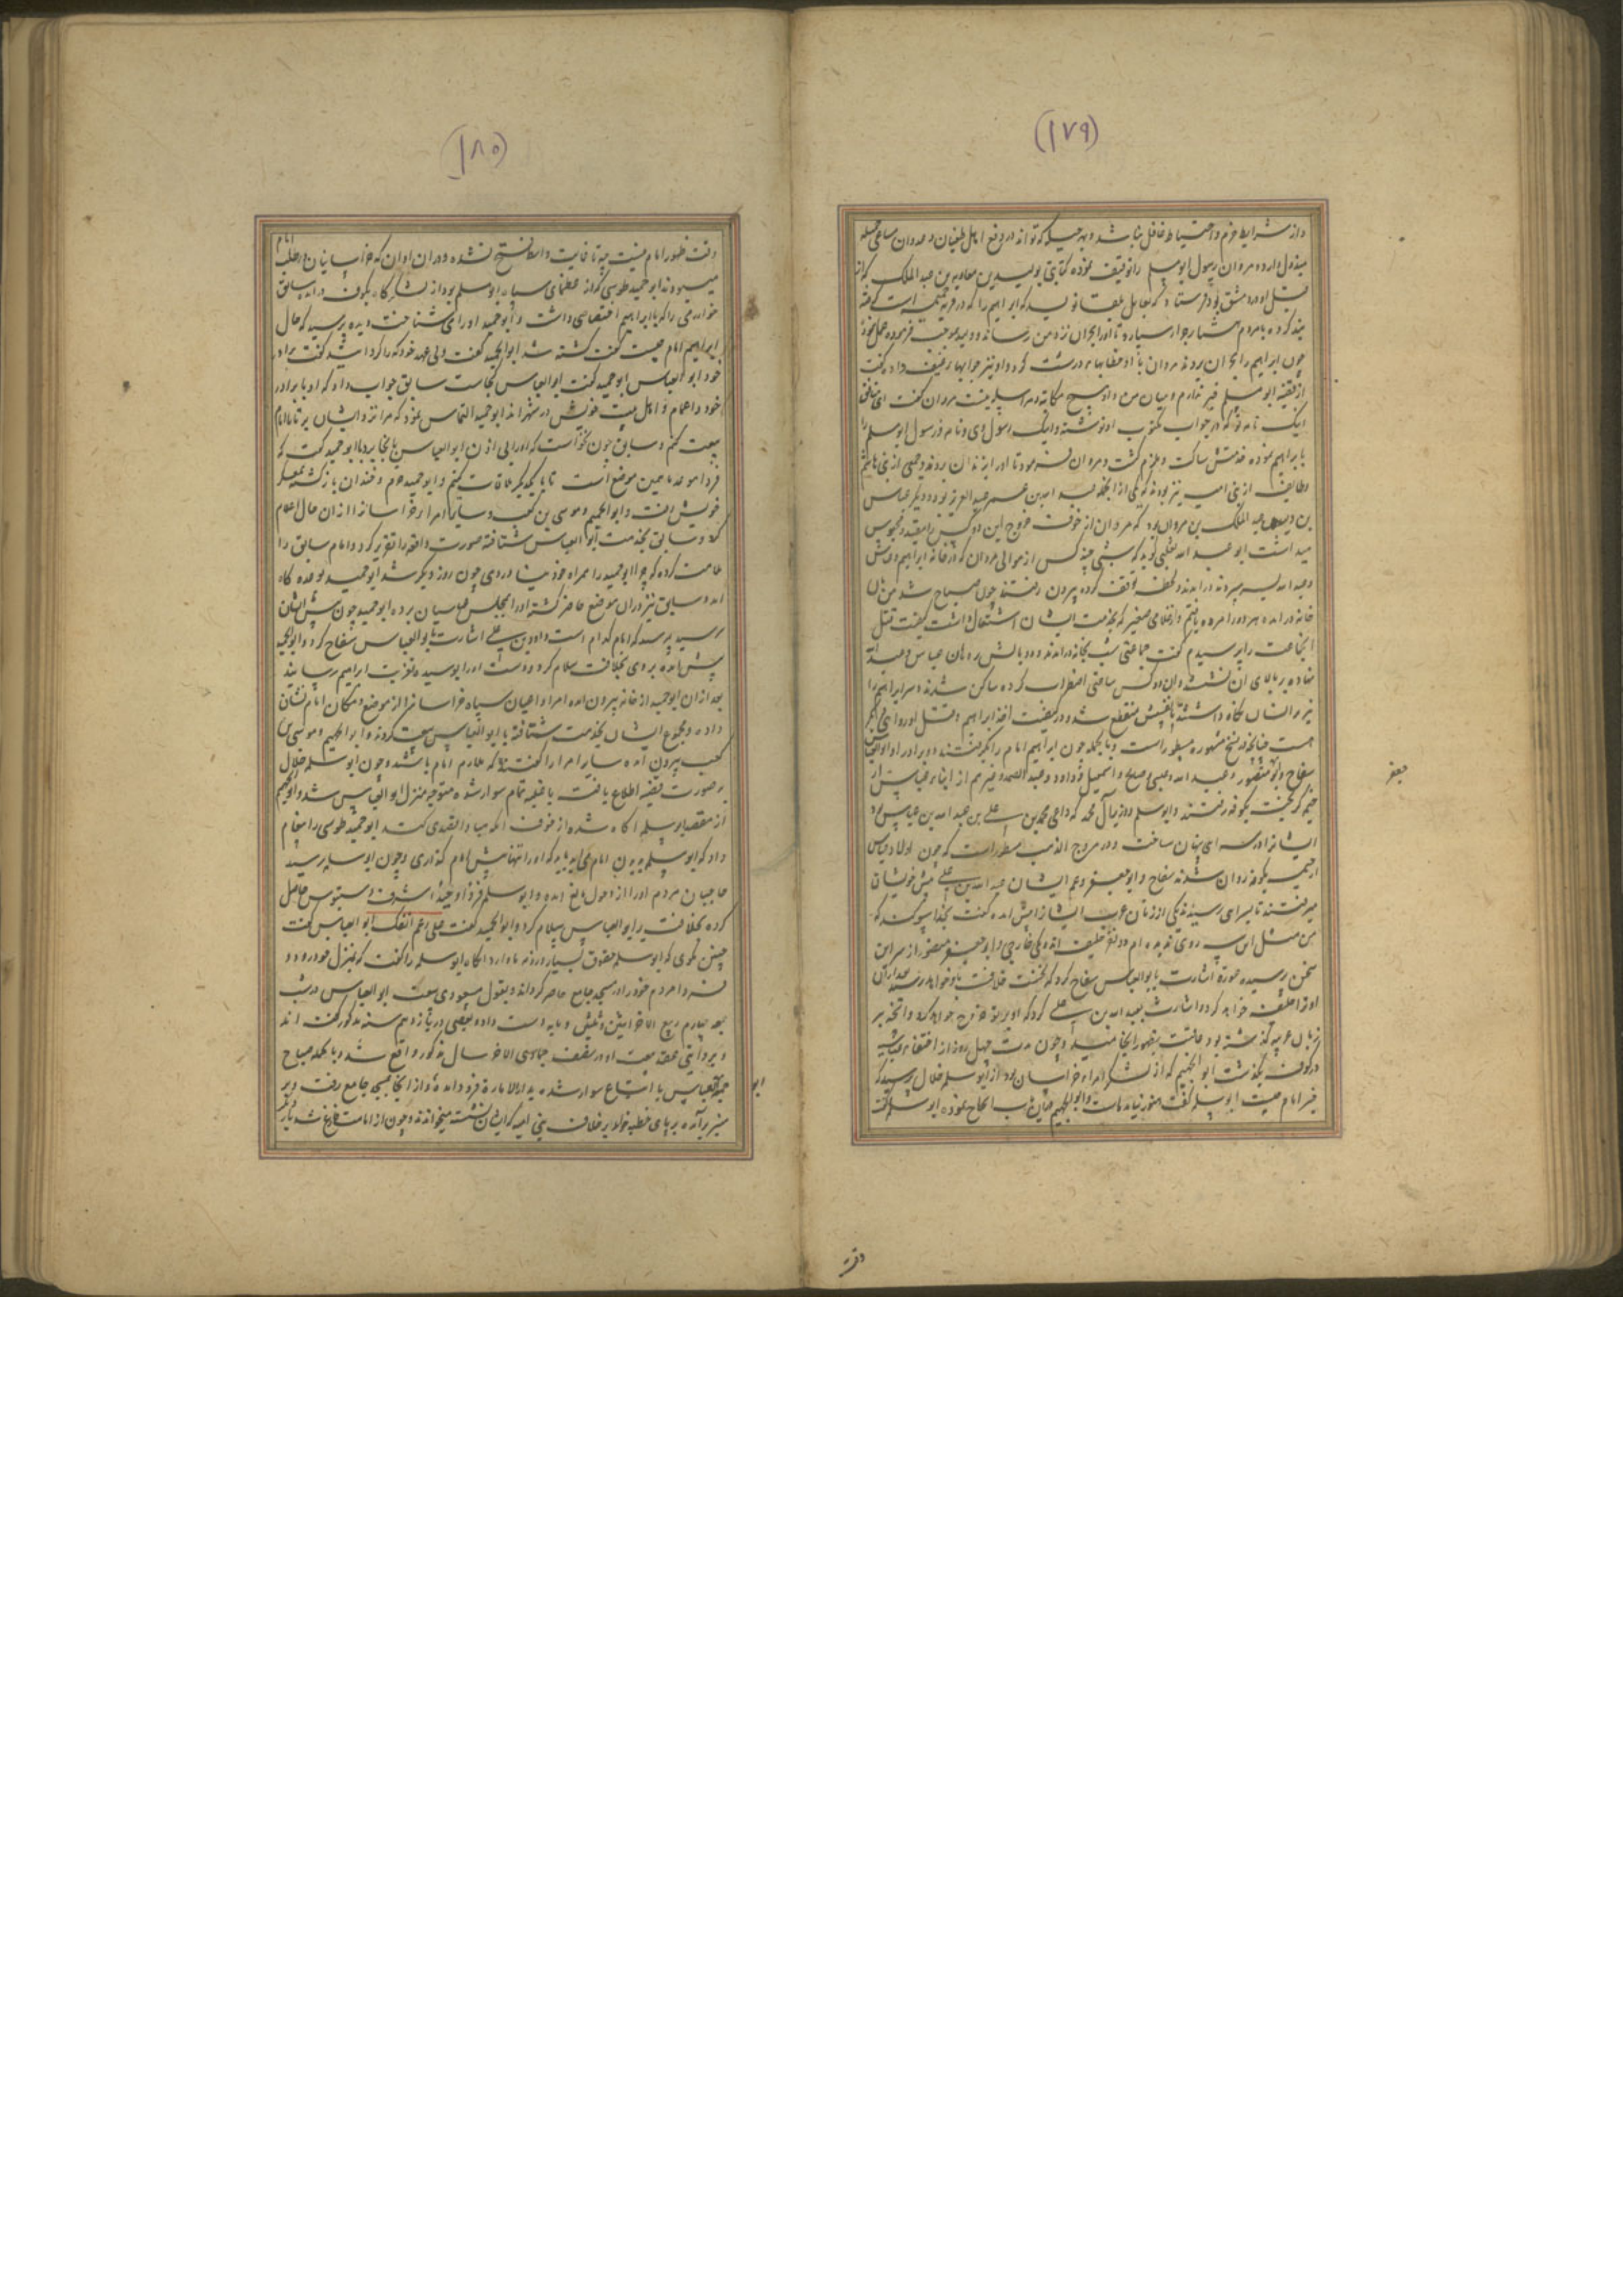 (۱۷۹)
واز شرایط حزم و احتیاط غافل نباشد و بهر حیله که تواند در دفع اهل طغیان و عدوان مساعی جمیله
مبذول دارد و مروان رسول ابومسلم را توقیف نموده کتابتی بولید بن معاویه بن عبد الملک که از
قبل او در دمشق بود فرستاد که بعامل بلقا نویسد که ابراهیم را که در قریه حمیمه است گرفته
بند کرده با مردم هشیار بسپارد تا او را بحران نزد من رسانند و ولید بموجب فرموده عمل نمود
چون ابراهیم را بحران بردند مروان با او خطابهاء درشت کرد و او نیز جوابهاء عنیف داد گفت
از قضیه ابومسلم خبر ندارم و میان من و او هیچ مکاتبه و مراسله نیست مروان گفت ای منافق
اینک نامه تو که در جواب مکتوب او نوشته و اینک رسول وی و نامه و رسول ابومسلم را
بابراهیم نموده خدمتش ساکت و ملزم گشت و مروان فرمود تا او را بزندان بردند و جمعی از بنی هاشم
و طایفه از بنی امیه نیز بودند که یکی از انجمله عبد الله بن عمر عبد العزیز بود و دیگر عباس
بن ولید عبد الملک بن مروان بود که مروان از خوف خروج این دو کس را مقید و محبوس
میداشت ابو عبد الله تغلبی گوید که شبی چند کس از موالی مروان که در خانه ابراهیم و عباس
وعبد الله بسر میبردند در آمدند و لحظه توقف کرده بیرون رفتند چون صباح شد من بآن
خانه در آمده هر دو را مرده یافتم و از غلامی صغیر که بخدمت ایشان اشتغال داشت کیفیت قتل
انجماعت را پرسیدم گفت جماعتی شب بخانه در آمدند و دو بالش بر دهان عباس و عبد الله
نهاده بر بالای آن نشستند و آن دو کس ساعتی اضطراب کرده ساکن شدند و سر ابراهیم را
نیز در انبان نگاه داشتند تا نفسش منقطع شد و در کیفیت اخذ ابراهیم و قتل او روایتی دیگر
هست چنانچه در نسخ مشهوره مسطور است و بالجمله چون ابراهیم امام را بگرفتند دو برادر او ابو العباس
سفاح و ابو منصور و عبد الله و عیسی و صالح و اسمعیل و داود و عبد الصمد و غیرهم از ابناء عباس از
جعفر
حمیمه گریخته بکوفه رفتند و ابوسلمه وزیر آل محمد که داعی محمد بن علی بن عبد الله بن عباس بود
ایشانرا در سرای پنهان ساخت و در مروج الذهب مسطور است که چون اولاد عباس
از حمیمه بکوفه روان شدند سفاح و ابو جعفر و عم ایشان عبد الله بن علی پیش خویشان
میرفتند تا بسرای رسیدند یکی از زنان عرب ایشانرا پیش آمده گفت بخدا سوگند که
من مثل این سه روی ندیده ام دو نفر خلیفه اند و یکی خارجی و ابو جعفر منصور از سر این
سخن پرسیده عورة اشارت بابو العباس سفاح کرد که نخست خلافت باو خواهد رسید و بعد از آن
او تو خلیفه خواهی کرد و اشارت بعبد الله بن علی کرد که او بر تو خروج خواهد کرد و آنچه بر
زبان عربیه گذشته بود عاقبت بظهور انجامید و چون مدت چهل روز از اختفاء عباسیه
در کوفه بگذشت ابو الجهم که از لشکر امراء خراسان بود از ابوسلمه خلال پرسید که
خبر امام چیست ابوسلمه گفت هنوز نیامده است و ابو الجهم در این باب الحاح نموده ابوسلمه گفت
وقت
(۱۸۰)
وقت ظهور امام نیست چه تا غایت واسط فتح نشده و در ان اوان که خراسانیان در طلب امام
میبودند ابو حمید طوسی که از عظمای سپاه ابومسلم بود از لشکرگاه بکوفه در آمد سابق
خوارزمی را که با ابراهیم اختصاصی داشت و ابو حمید او را می شناخت دیده پرسید که حال
ابراهیم امام چیست گفت کشته شد ابو الحمید گفت ولی عهد خود که را گردانید گفت برادر
خود ابو العباس ابو حمید گفت ابو العباس کجاست سابق جواب داد که او با برادر
خود و اعمام و اهل بیت خویش در شهر اند ابو حمید التماس نمود که مرا نزد ایشان بر تا با امام
بیعت کنم و سابق چون نخواست که او را بی اذن ابو العباس بانجا برد با ابو حمید گفت که
فردا موعد ما همین موضع است تا با یکدیگر ملاقات کنیم و ابو حمید خرم و خندان باز گشته بمعسکر
خویش رفت و ابو الجهم و موسی بن کعب و سایر امراء خراسانرا از ان حال اعلام
کرد و سابق بخدمت ابو العباس شتافته صورت واقعه را تقریر کرد و امام سابق را
ملامت کرده که چرا ابو حمید را همراه خود نیاوردی چون روز دیگر شد ابو حمید بوعده گاه
آمد و سابق نیز در ان موضع حاضر گشته او را بمجلس عباسیان برد و ابو حمید چون پیش ایشان
رسید پرسید که امام کدام است داود بن علی اشارت بابو العباس سفاح کرد و ابو الحمید
پیش آمده بر وی بخلافت سلام کرد و دست او را بوسیده و تعزیت ابراهیم رسانید
بعد از ان ابو حمید از خانه بیرون آمده امرا و اعیان سپاه خراسانرا از موضع و مکان امام نشان
داد و مجموع ایشان بخدمت شتافته با ابو العباس بیعت کردند و ابو الجهیم و موسی بن
کعب بیرون آمده سایر امرا را گفتند که ملازم امام باشند و چون ابوسلمه خلال
بر صورت قضیه اطلاع یافت با قبیله تمام سوار شده متوجه منزل ابو العباس شد و ابو الجهیم
از مقصد ابوسلمه آگاه شده از خوف انکه مبادا تعدی کند ابو حمید طوسی را پیغام
داد که ابوسلمه بدیدن امام می آید باید که او را تنها پیش امام گذاری و چون ابوسلمه رسید
حاجبان مردم او را از دخول مانع آمده و ابوسلمه فردا وحیدا اشرف دستبوس حاصل
کرده بخلافت بر ابو العباس سلام کرد و ابو الحمید گفت علی رغم انفک ابو العباس گفت
چنین مگوی که ابوسلمه حقوق بسیار در ذمه ما دارد انگاه ابوسلمه را گفت که بمنزل خود رو و
فردا مردم خود را در مسجد جامع حاضر گردان و بقول مسعودی بیعت ابو العباس در شب
جمعه چهارم ربیع الاخر اثنین و ثلثین و مایه دست داد و بعضی در یازدهم سنه مذکور گفته اند
و بروایتی جمعه بیعت او در منتصف جمادی الاخر سال مذکور واقع شد و بالجمله صباح
جمعه ابو العباس با اتباع سوار شده بدار الامارة فرود آمد و از انجا بمسجد جامع رفت و بر
ابو
منبر بر آمده بر پای خطبه خواند بر خلاف بنی امیه که ایشان نشسته میخواندند و چون از امامت فارغ شد بار دیگر